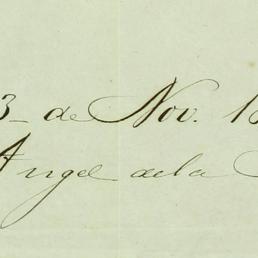 3 de Nov. 18
Angel de la